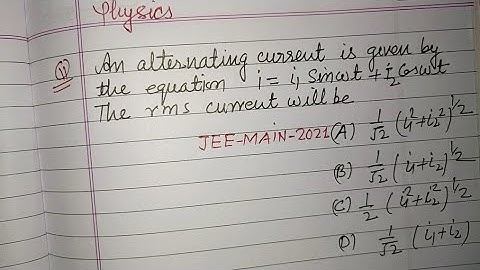 Physics
Q An alternating current is given by
the equation i = i₁ Sinωt + i₂ Cosωt
The rms current will be
JEE-MAIN-2021 (A) 1/√2 (i₁² + i₂²)^1/2
(B) 1/√2 (i₁ + i₂)^1/2
(C) 1/2 (i₁² + i₂²)^1/2
(D) 1/√2 (i₁ + i₂)